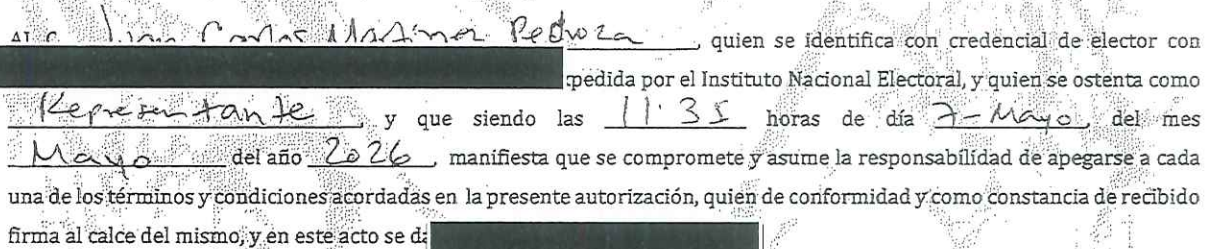 Al C. Juan Carlos Martinez Pedroza, quien se identifica con credencial de elector con
xpedida por el Instituto Nacional Electoral, y quien se ostenta como
Representante, y que siendo las 11:35 horas de día 7-Mayo, del mes
Mayo del año 2026, manifiesta que se compromete y asume la responsabilidad de apegarse a cada
una de los términos y condiciones acordadas en la presente autorización, quien de conformidad y como constancia de recibido
firma al calce del mismo, y en este acto se d